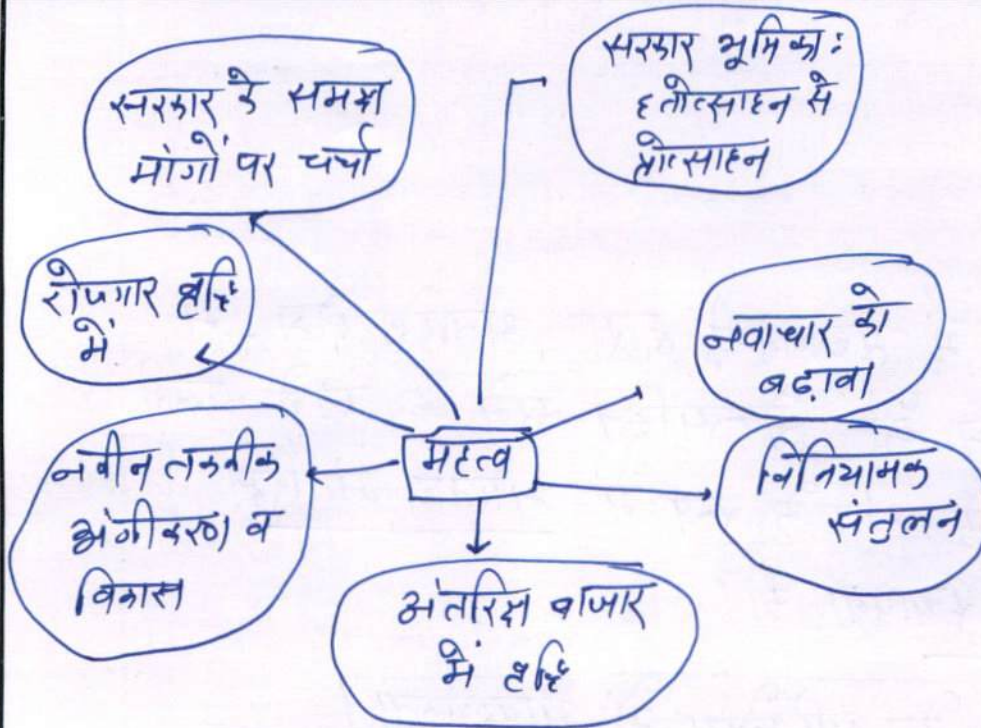 सरकार के समक्ष
मांगों पर चर्चा
सरकार भूमिका:
हतोत्साहन से
प्रोत्साहन
रोजगार वृद्धि
में
नवाचार को
बढ़ावा
महत्व
नवीन तकनीक
अंगीकरण व
विकास
विनियामक
संतुलन
अंतरिक्ष बाजार
में वृद्धि